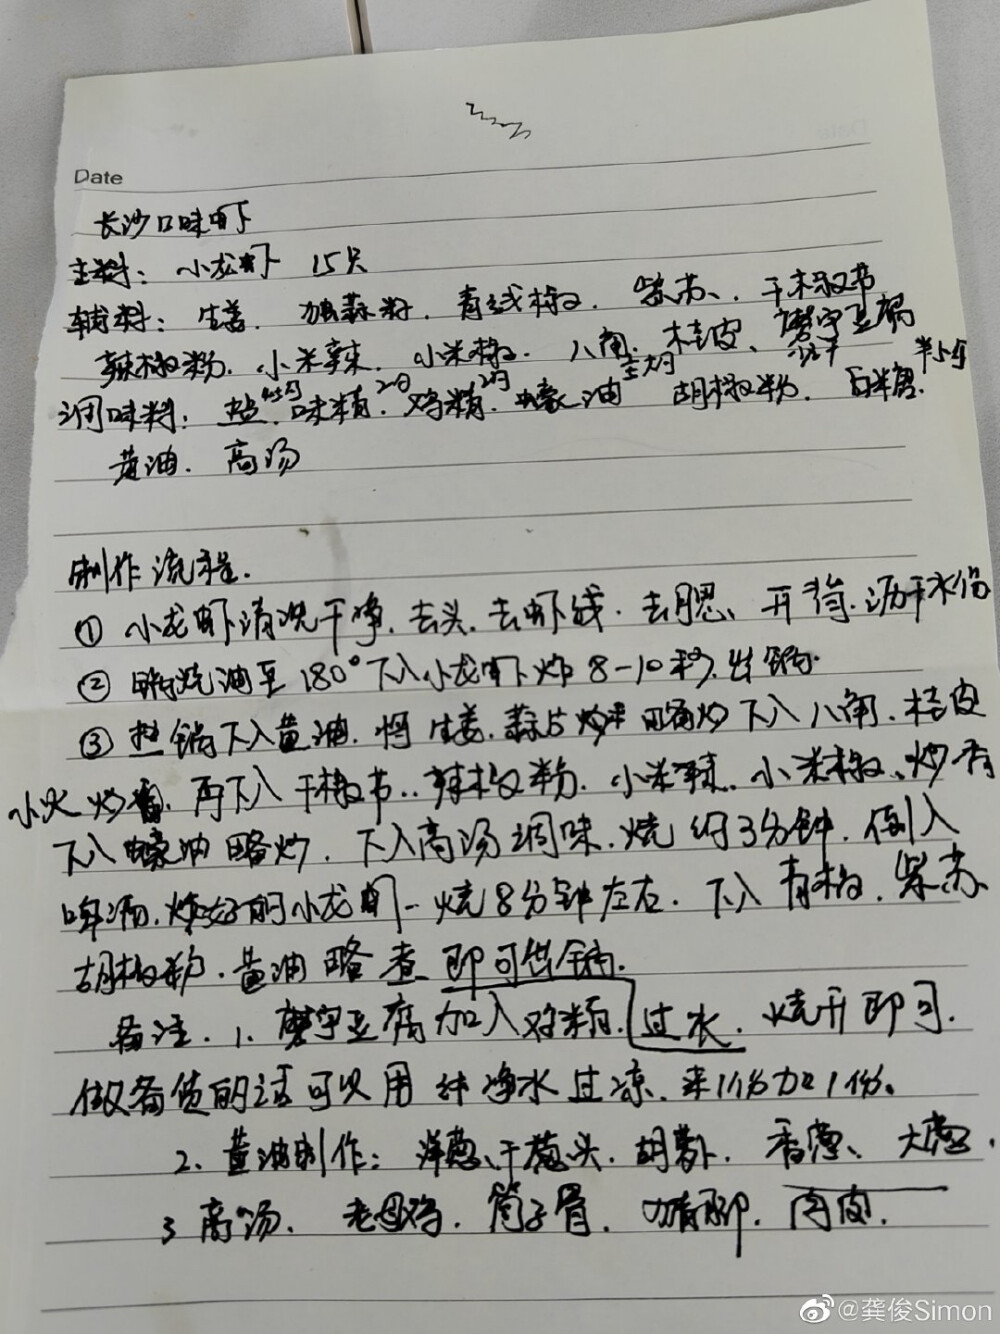 Date
长沙口味虾
主料：小龙虾 15只
辅料：生姜、蒜籽、青线椒、紫苏、干椒节
辣椒粉、小米辣、小米椒、八角、桂皮、魔芋豆腐
调味料：盐、味精2勺、鸡精2勺、蠔油、胡椒粉、白糖半小勺
黄油、高汤
制作流程.
① 小龙虾清洗干净、去头、去虾线、去腮、开背、沥干水份
② 锅烧油至180°下入小龙虾炸8-10秒出锅.
③ 锅下入黄油、将生姜、蒜片略炒下入八角、桂皮
小火炒香、再下入干椒节、辣椒粉、小米辣、小米椒、炒香
下入蠔油略炒、下入高汤调味、烧约3分钟、倒入
啤酒、炸好的小龙虾、烧8分钟左右、下入青椒、紫苏、
胡椒粉、黄油略煮即可出锅.
备注、1、魔芋豆腐加入过水、烧开即可.
做备货的话可以用纯净水过凉、来1份加1份。
2、黄油制作：洋葱、干葱头、胡萝卜、香葱、大葱.
3 高汤、老母鸡、筒子骨、脚、肉皮.
@龚俊Simon